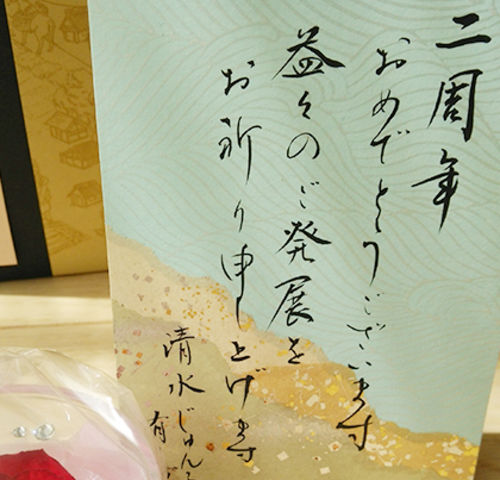 二周年
おめでとうございます
益々のご発展を
お祈り申し上げます
清水じゅん
有